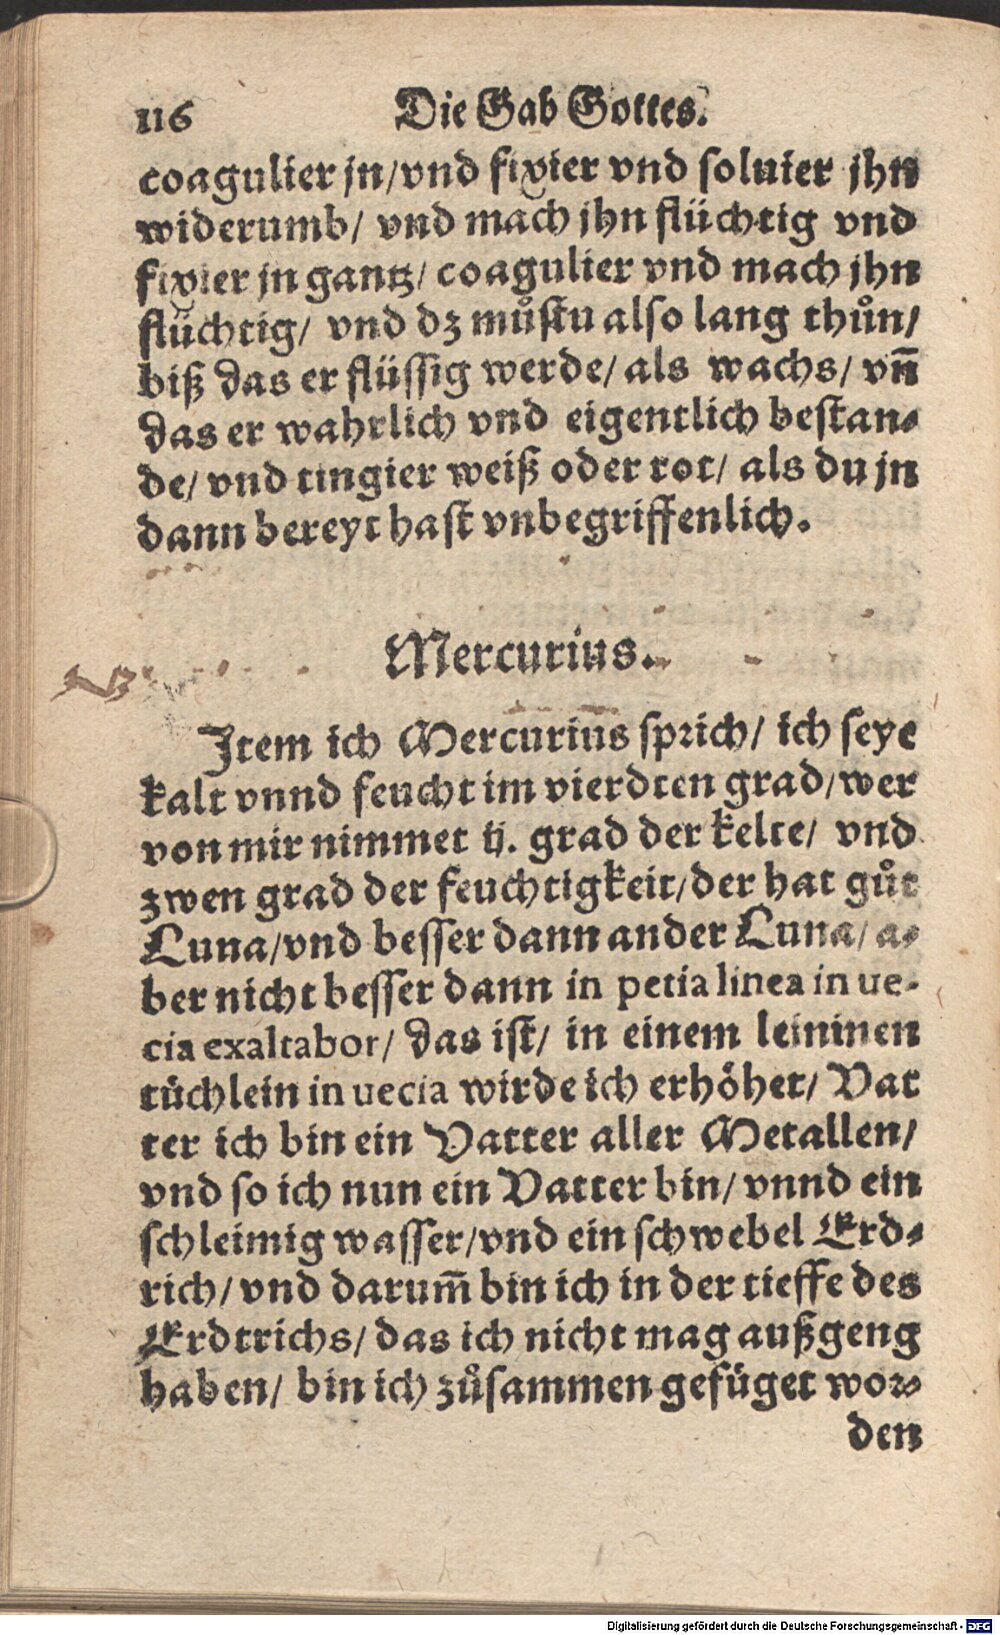 116 Die Gab Gottes.
coagulier jn/vnd fixier vnd soluier jhn
widerumb/ vnd mach jhn flüchtig vnd
fixier jn gantz/ coagulier vnd mach jhn
flüchtig/ vnd dz můstu also lang thůn/
biß das er flüssig werde/ als wachs/ vn̄
das er warlich vnd eigentlich bestan-
de/ vnd tingier weiß oder rot/ als du jn
dann bereyt hast vnbegriffenlich.
Mercurius.
Item ich Mercurius sprich/ ich seye
kalt vnnd feucht im vierdten grad/wer
von mir nimmet ij. grad der kelte/ vnd
zwen grad der feuchtigkeit/der hat gůt
Luna/vnd besser dann ander Luna/ a-
ber nicht besser dann in petia linea in ue-
cia exaltabor/ das ist/ in einem leininen
tüchlein in uecia wirde ich erhöhet/ Vat
ter ich bin ein Vatter aller Metallen/
vnd so ich nun ein Vatter bin/ vnnd ein
schleimig wasser/vnd ein schwebel Erd-
rich/ vnd darum̄ bin ich in der tieffe des
Erdtrichs/ das ich nicht mag außgeng
haben/ bin ich zůsammen gefüget wor-
den
Digitalisierung gefördert durch die Deutsche Forschungsgemeinschaft - DFG